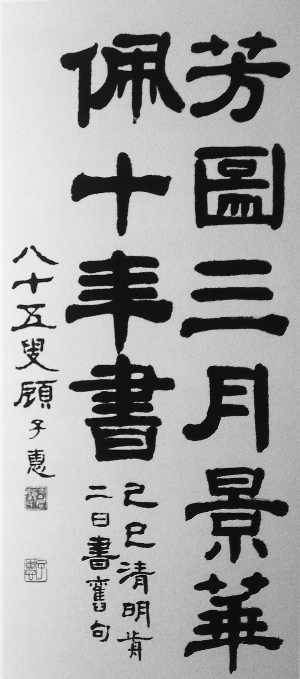 芳園三月景華
佩十年書
己巳清明前
二日書舊句
八十五叟顧子惠